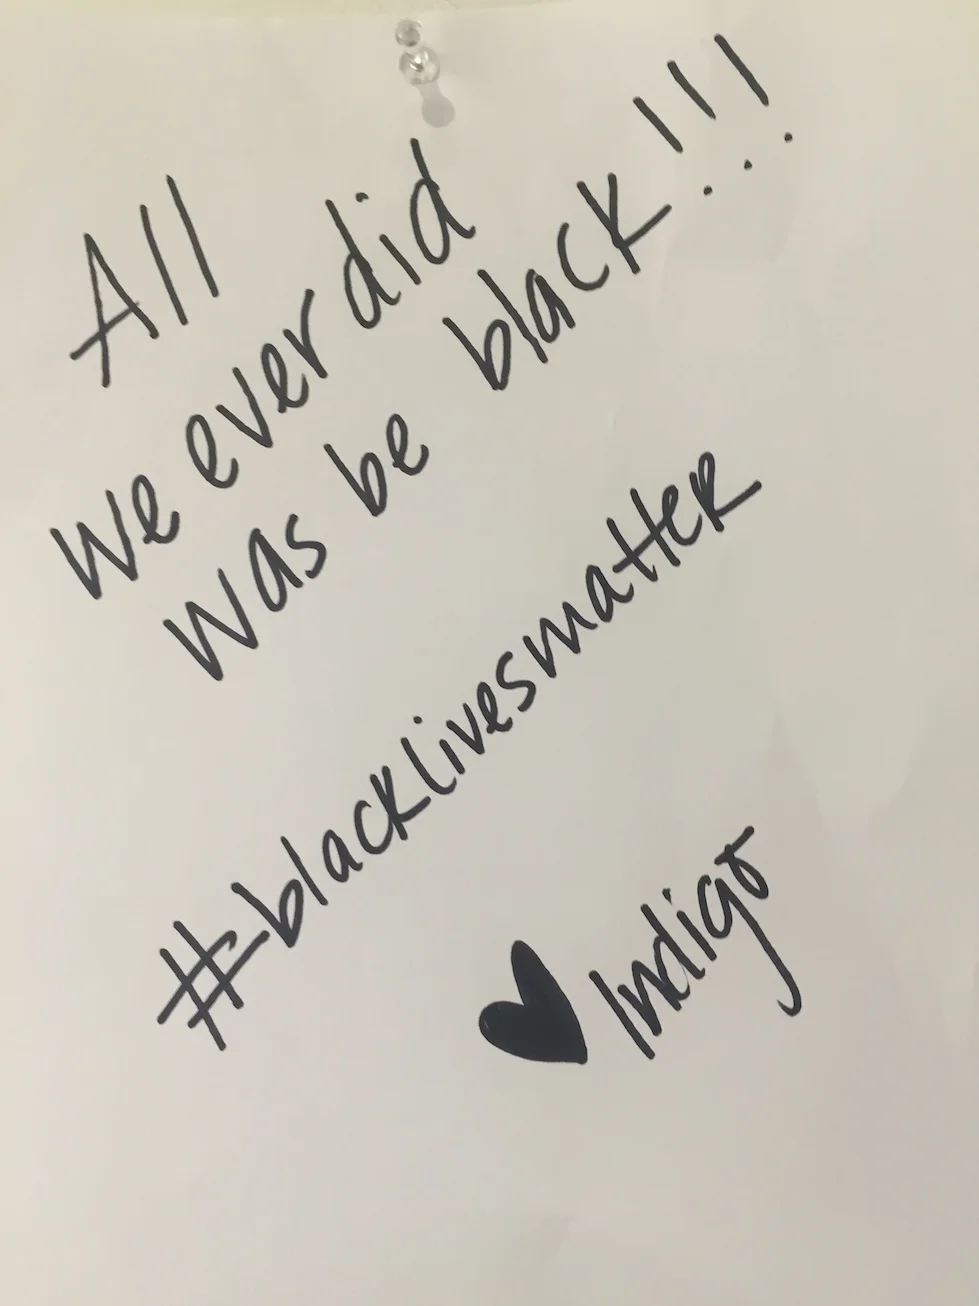 All
we ever did
was be black!!!
#blacklivesmatter
♥ Indigo